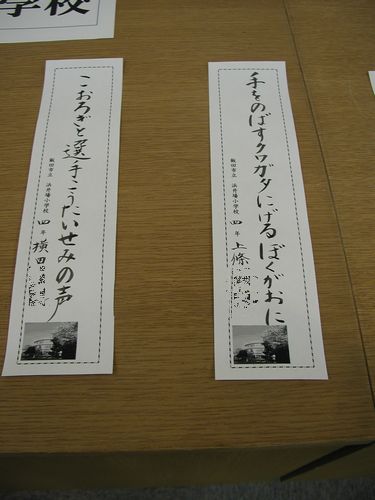 学校
手をのばすクワガタにげるぼくがおに
飯田市立 浜井場小学校 四年 上條
こおろぎと選手こうたいせみの声
飯田市立 浜井場小学校 四年 横田